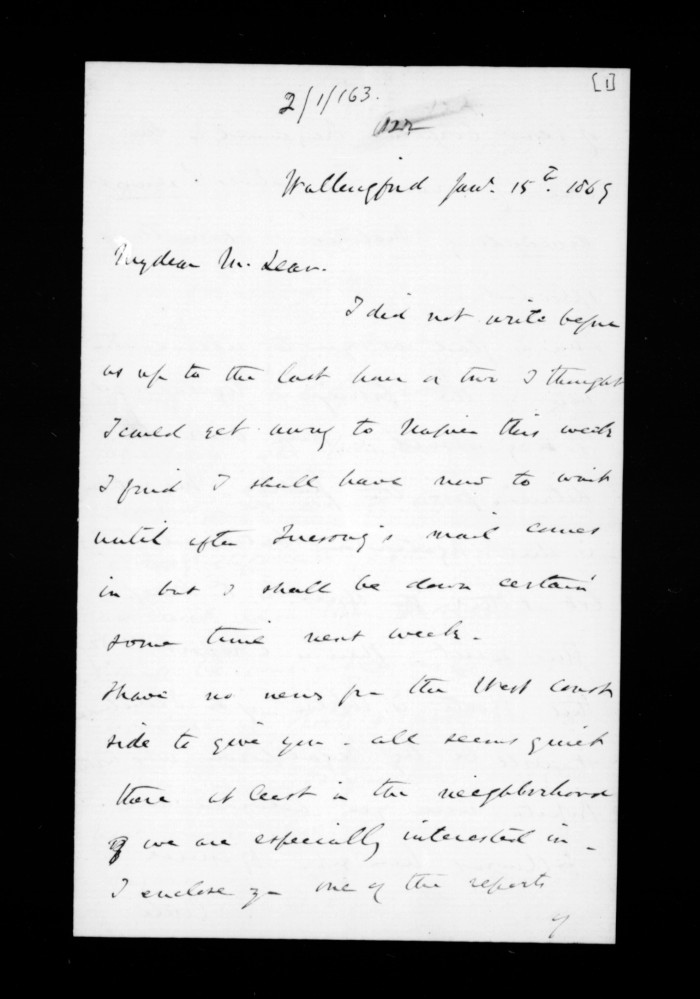 [1]
2/1/163.
Wallingford Jany. 15th. 1869
My dear McLean.
I did not write before
as up to the last hour or two I thought
I could get away to Napier this week
I find I shall have now to wait
until after Tuesday's mail comes
in but I shall be down certain
some time next week.
I have no news fm the West Coast
side to give you - all seems quiet
there at least in the neighborhood
we are especially interested in -
I enclose yu one of the reports
of